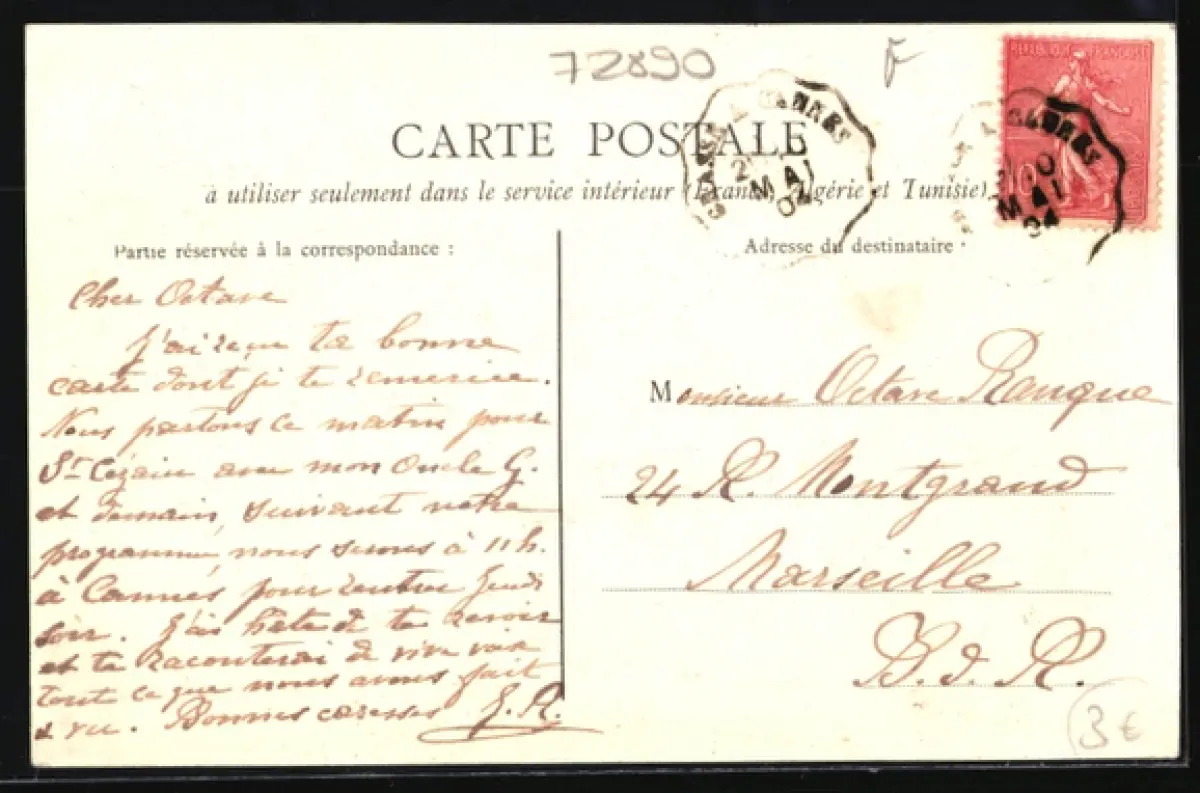 72890
F
RÉPUBLIQUE FRANÇAISE
CARTE POSTALE
à utiliser seulement dans le service intérieur (France, Algérie et Tunisie).
GRASSE A CANNES
MAI
04
A CANNES
MAI
04
Partie réservée à la correspondance :
Adresse du destinataire
Cher Octave
J'ai reçu ta bonne
carte dont je te remercie.
Nous partons ce matin pour
St Cézaire avec mon Oncle G.
et demain, suivant notre
programme, nous serons à 11 h.
à Cannes pour rentrer Jeudi
soir. J'ai hâte de te revoir
et te raconterai de vive voix
tout ce que nous avons fait
& vu. Bonnes caresses J. R.
Monsieur Octave Ranque
24 R. Montgrand
Marseille
B. d. R.
3 €